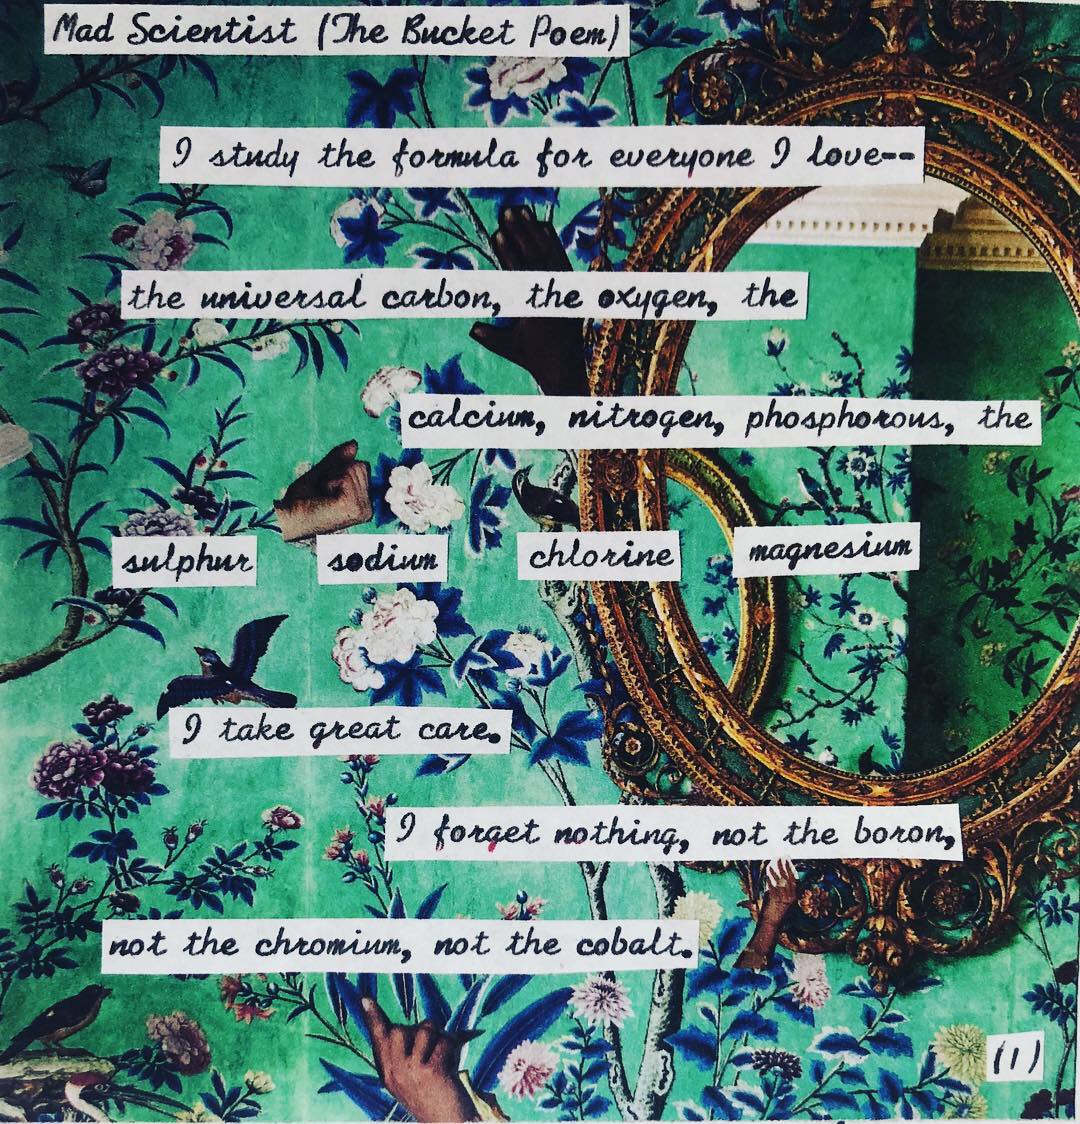 Mad Scientist (The Bucket Poem)
I study the formula for everyone I love--
the universal carbon, the oxygen, the
calcium, nitrogen, phosphorous, the
sulphur sodium chlorine magnesium
I take great care.
I forget nothing, not the boron,
not the chromium, not the cobalt.
(1)